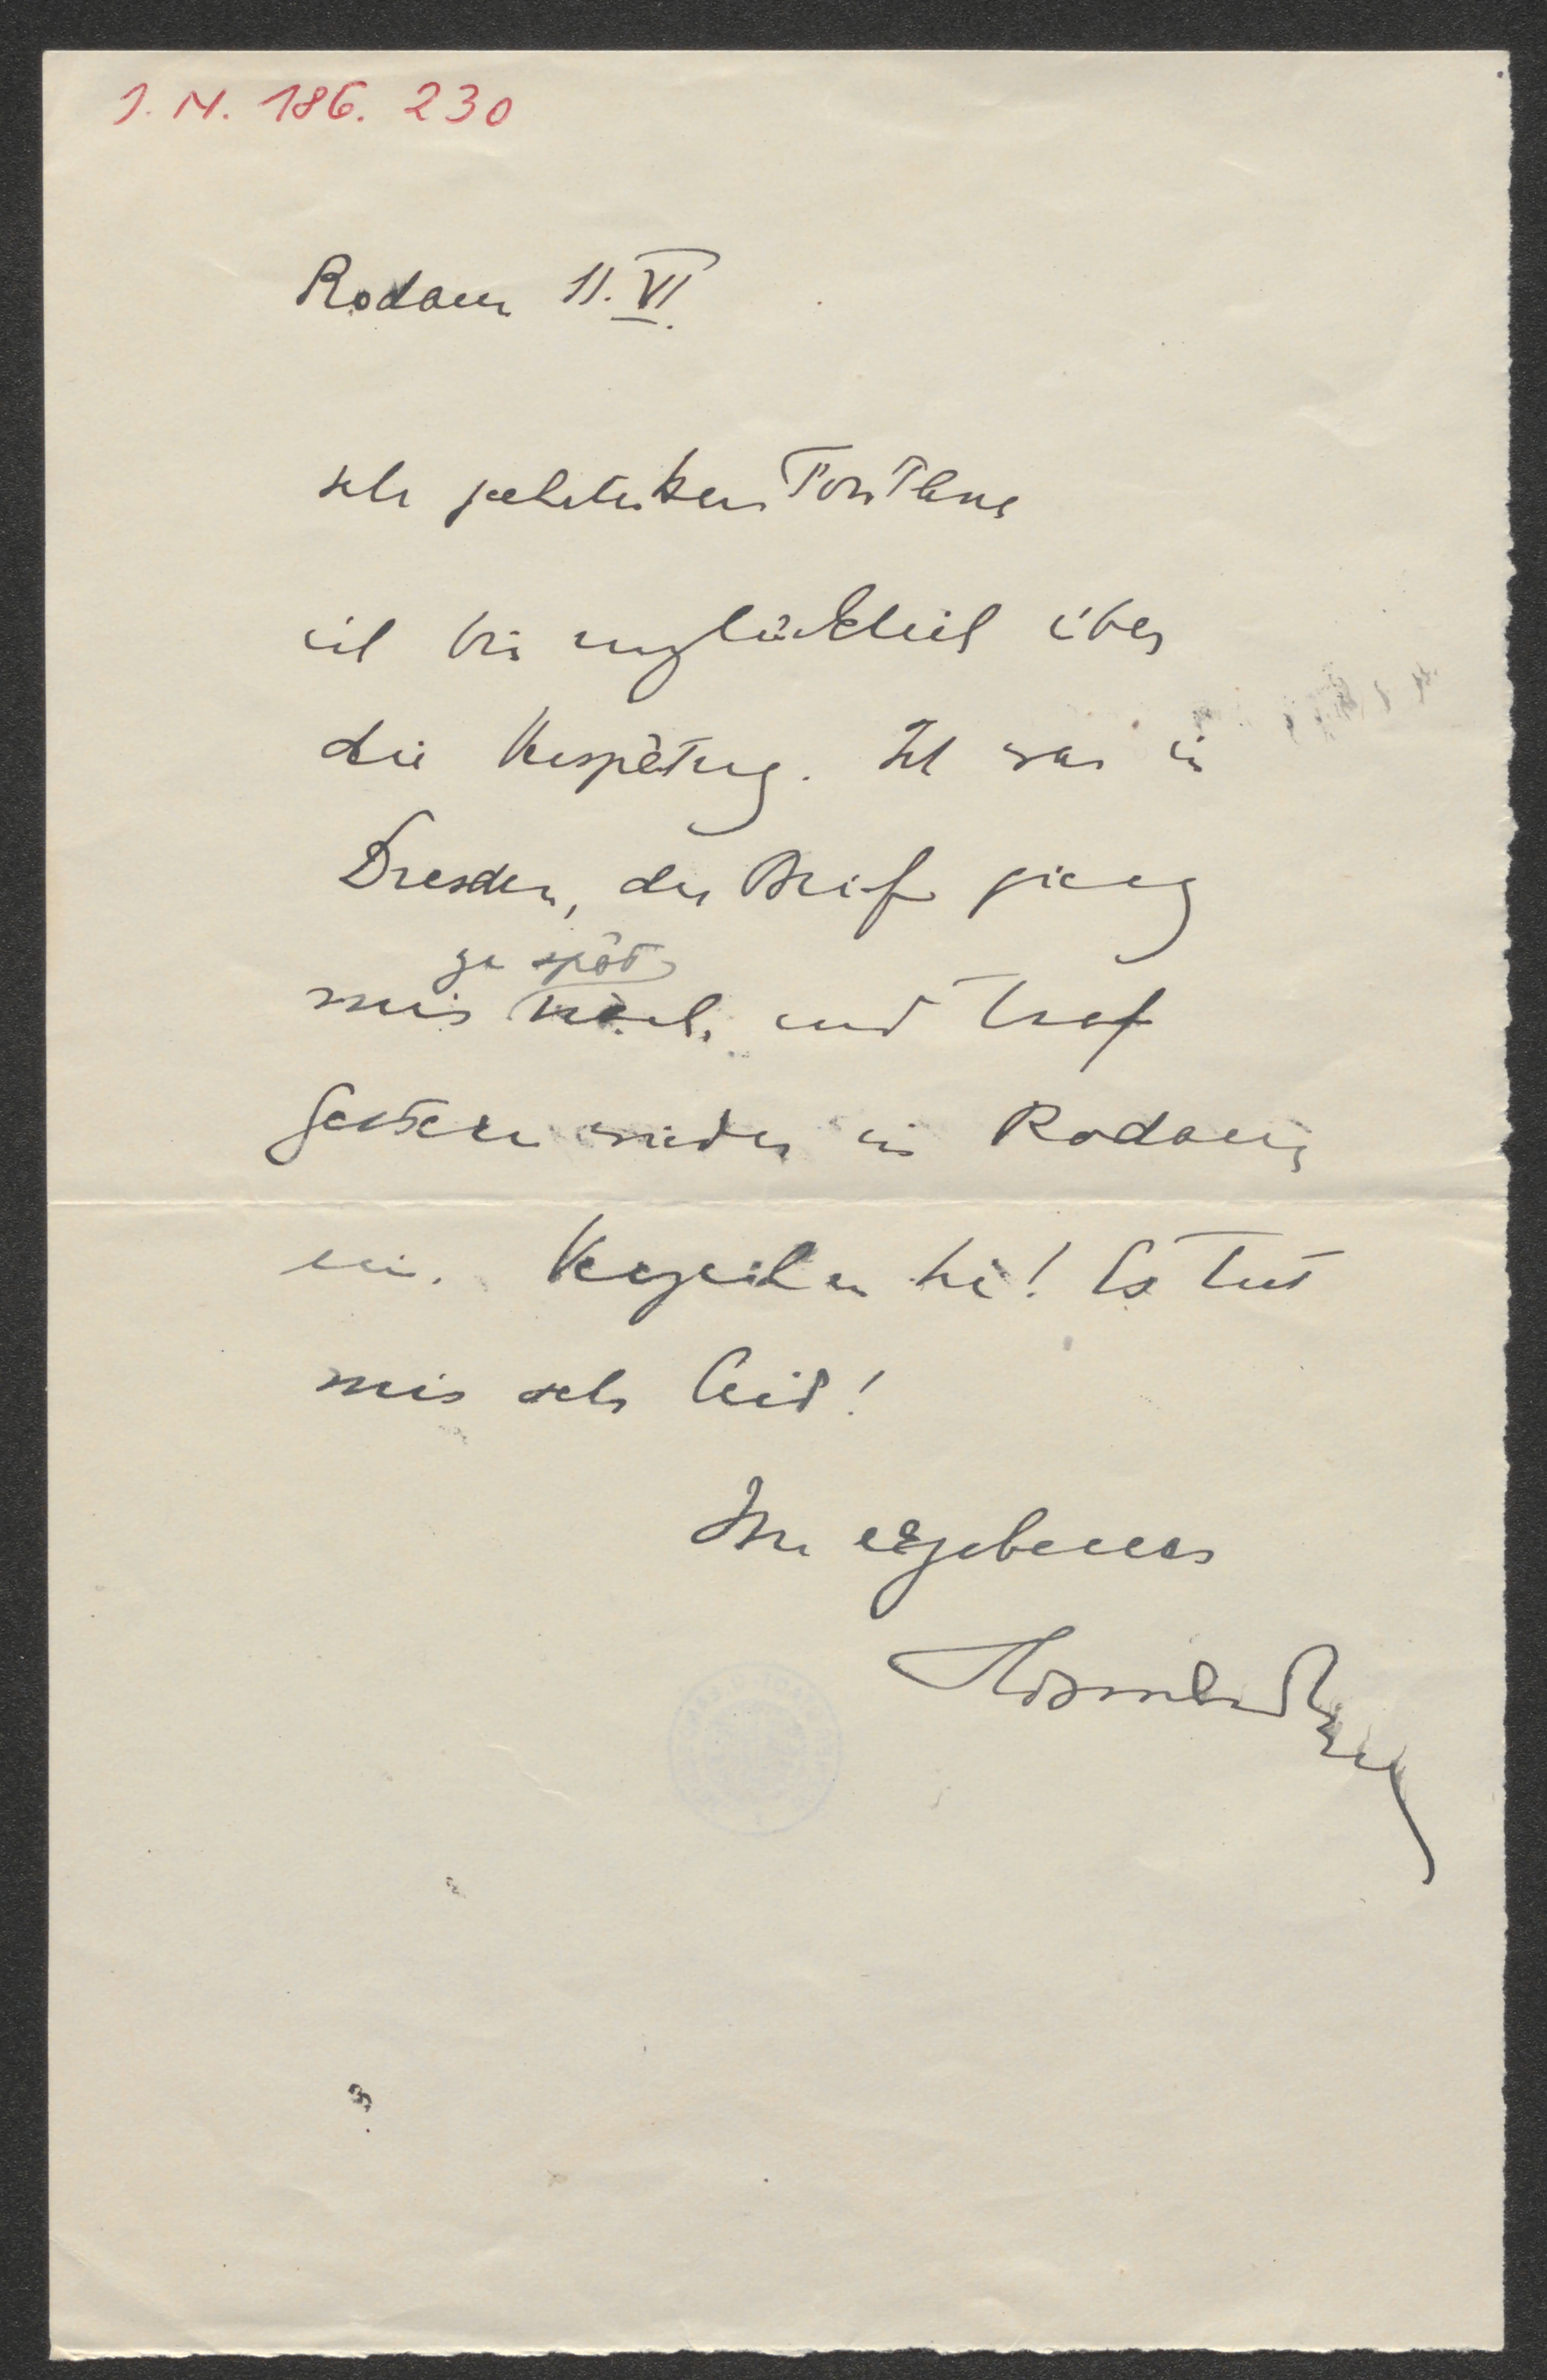 J. N. 186. 230
Rodaun 11. VI.
sehr geehrter Herr Fontana
ich bin unglücklich über
die Verspätung. Ich war in
Dresden, der Brief gieng
zu spät
mir nach, und traf
gestern wieder in Rodaun
ein. Verzeihen Sie! Es tut
mir sehr leid!
Ihr ergebener
Hofmannsthal